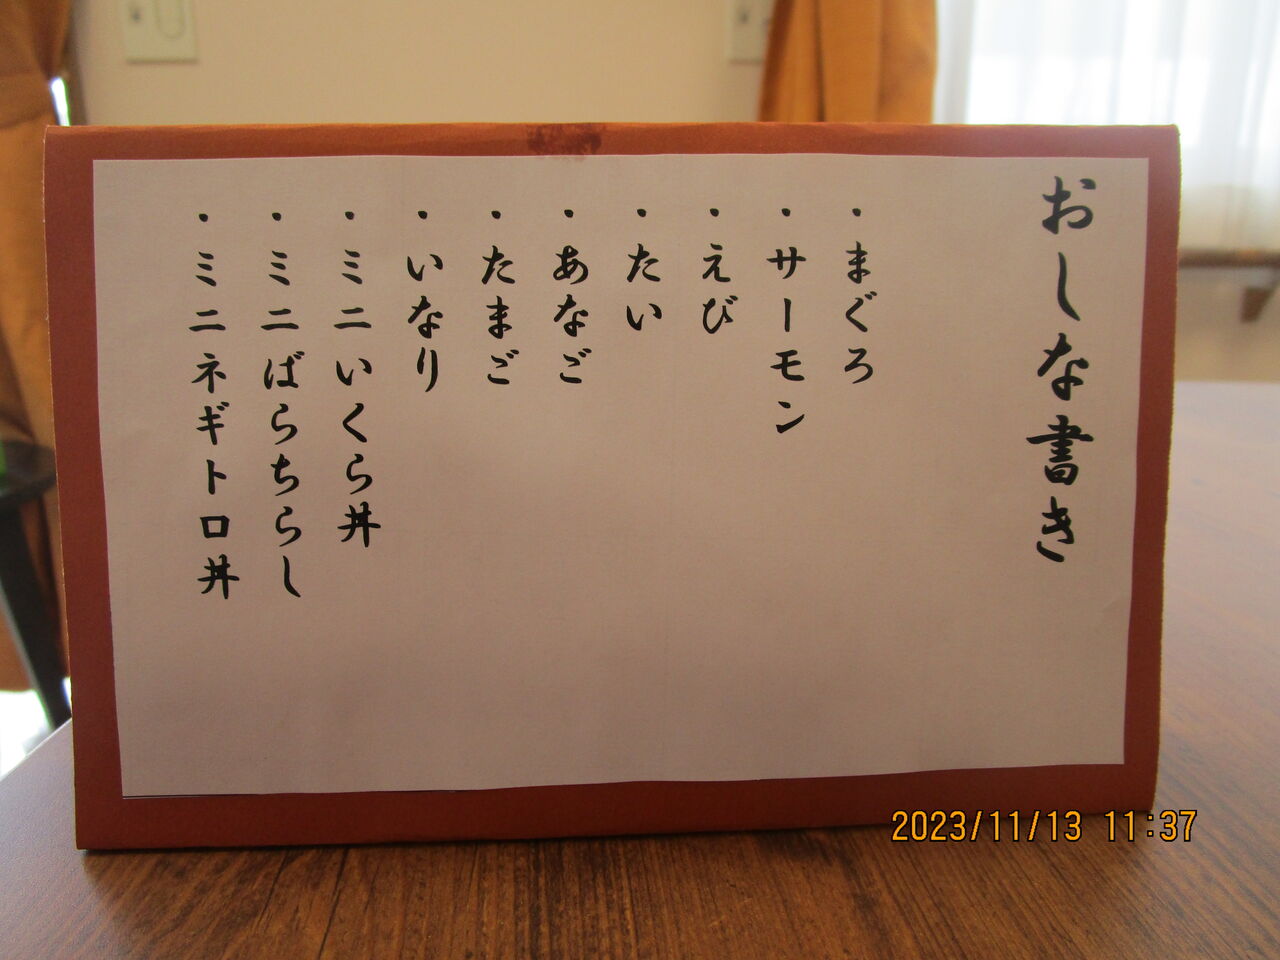 おしな書き
・まぐろ
・サーモン
・えび
・たい
・あなご
・たまご
・いなり
・ミニいくら丼
・ミニばらちらし
・ミニネギトロ丼
2023/11/13 11:37